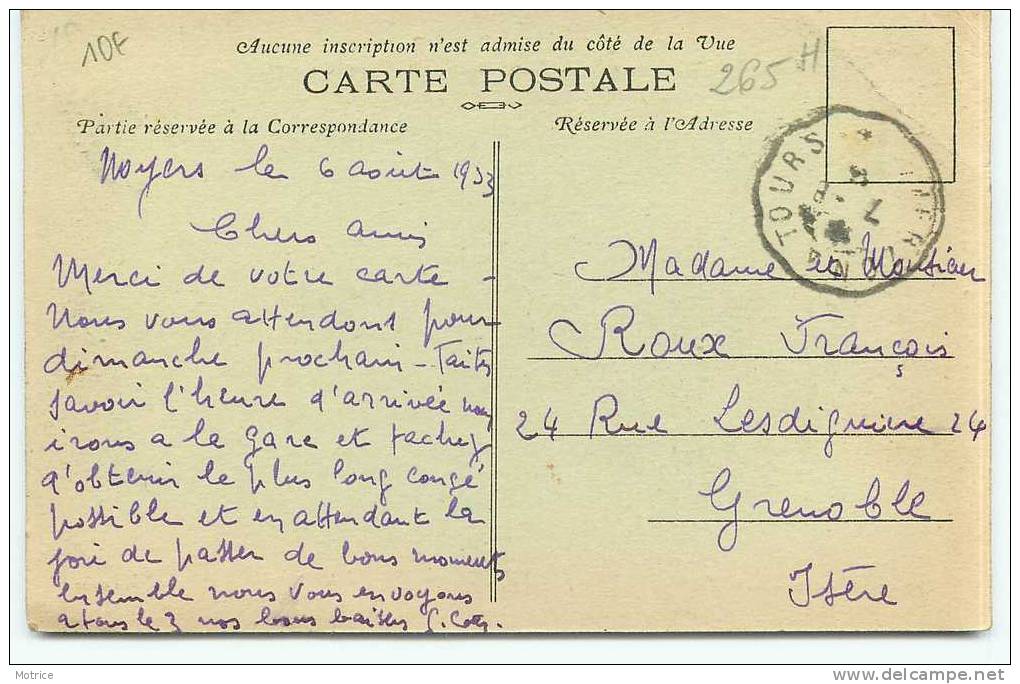 10F
Aucune inscription n'est admise du côté de la Vue
265 H
CARTE POSTALE
Partie réservée à la Correspondance
Réservée à l'Adresse
TOURS
Noyers le 6 août 1933
Chers Amis
Merci de votre carte -
Nous vous attendont pour
dimanche prochain - Faites
savoir l'heure d'arrivée nous
irons a la gare et tachez
d'obtenir le plus long congé
possible et en attendant la
joie de passer de bons moments
ensemble nous vous envoyons
a tous le 3 nos bons baisers G.
Madame et Monsieur
Roux François
24 Rue Lesdiguière 24
Grenoble
Isère
Motrice
www.delcampe.net